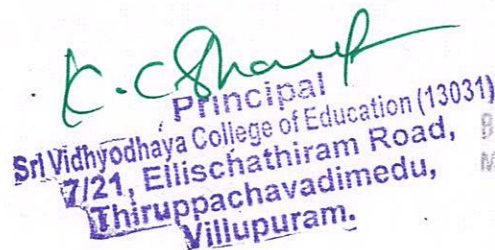 Principal
Sri Vidhyodhaya College of Education (13031)
7/21, Ellischathiram Road,
Thiruppachavadimedu,
Villupuram.